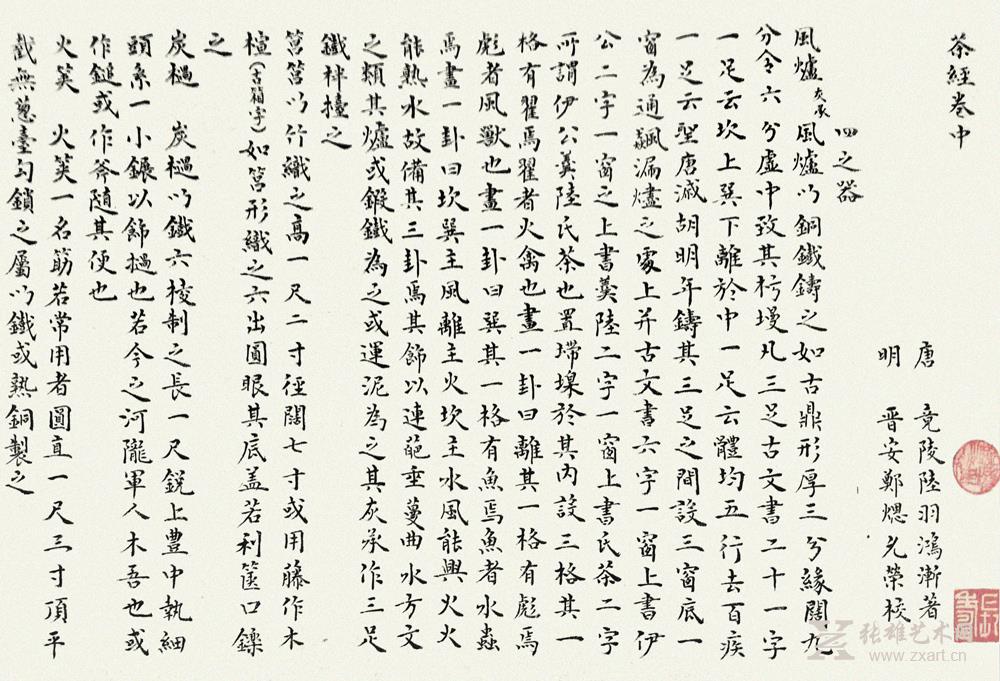 茶經卷中
唐 竟陵陸羽鴻漸著
明 晋安鄭煾允榮校
四之器
風爐灰承 風爐以銅鐵鑄之如古鼎形厚三分緣闊九
分令六分虛中致其杇墁凡三足古文書二十一字
一足云坎上巽下離於中一足云體均五行去百疾
一足云聖唐滅胡明年鑄其三足之間設三窗底一
窗為通飈漏燼之處上并古文書六字一窗上書伊
公二字一窗之上書羹陸二字一窗上書氏茶二字
所謂伊公羹陸氏茶也置墆㙞於其內設三格其一
格有翟焉翟者火禽也畫一卦曰離其一格有彪焉
彪者風獸也畫一卦曰巽其一格有魚焉魚者水蟲
焉畫一卦曰坎巽主風離主火坎主水風能興火火
能熱水故備其三卦焉其飾以連葩垂蔓曲水方文
之類其爐或鍛鐵為之或運泥為之其灰承作三足
鐵柈擡之
筥筥以竹織之高一尺二寸徑闊七寸或用藤作木
楦(古箱字)如筥形織之六出圓眼其底盖若利篋口鑠
之
炭檛 炭檛以鐵六棱制之長一尺鋭上豊中執細
頭系一小䥖以飾檛也若今之河隴軍人木吾也或
作鎚或作斧隨其便也
火筴 火筴一名筯若常用者圓直一尺三寸頂平
截無葱臺勾鎖之屬以鐵或熟銅製之
张雄艺术网
www.zxart.cn